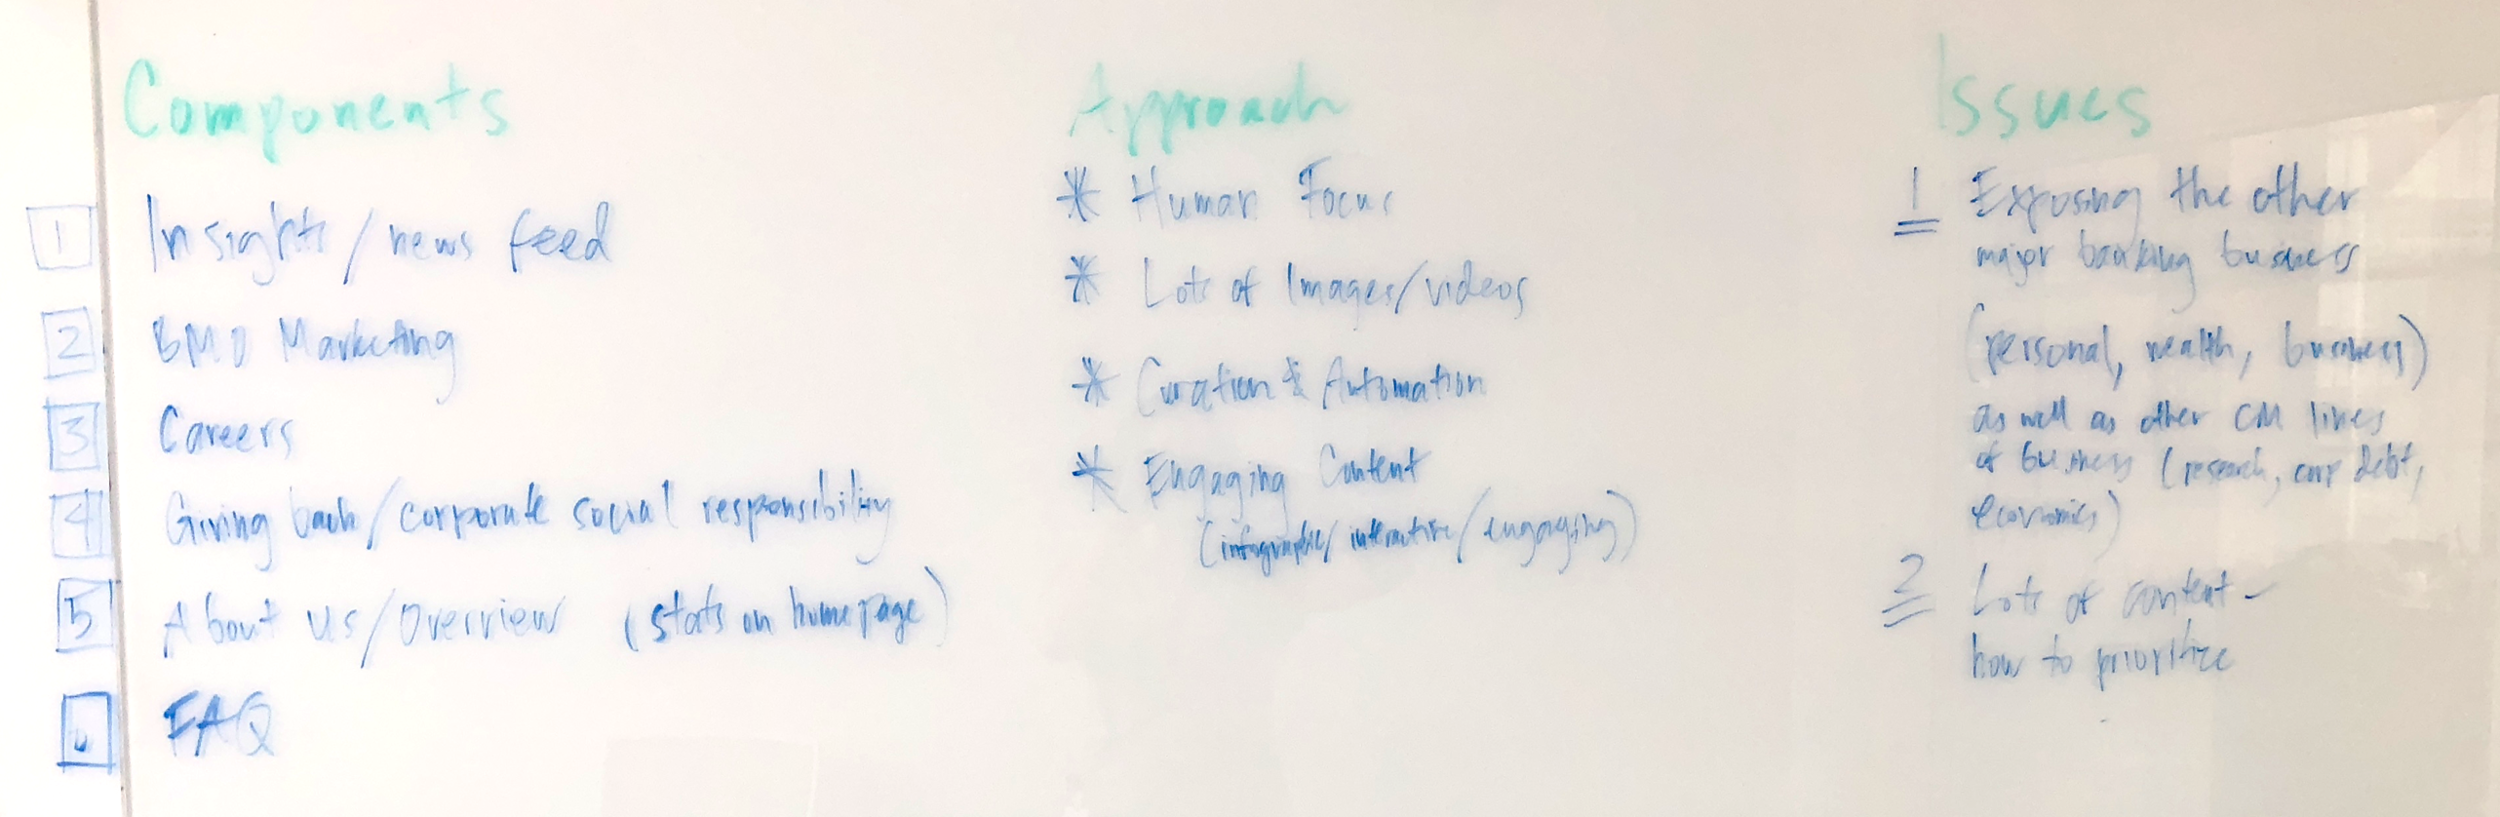 Components
1 Insights/news feed
2 BMO Marketing
3 Careers
4 Giving back/corporate social responsibility
5 About us/Overview (stats on homepage)
6 FAQ
Approach
* Human Focus
* Lots of Images/videos
* Curation & Automation
* Engaging Content
(infographic/interactive/engaging)
Issues
1 Exposing the other
major banking business
(personal, wealth, business)
as well as other CM lines
of business (research, corp debt,
economics)
2 Lots of content -
how to prioritize